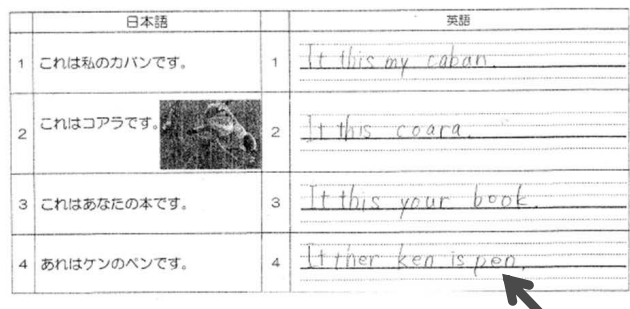 日本語 英語
1 これは私のカバンです。 1 It this my caban.
2 これはコアラです。 2 It this coara.
3 これはあなたの本です。 3 It this your book.
4 あれはケンのペンです。 4 It ther ken is pen.